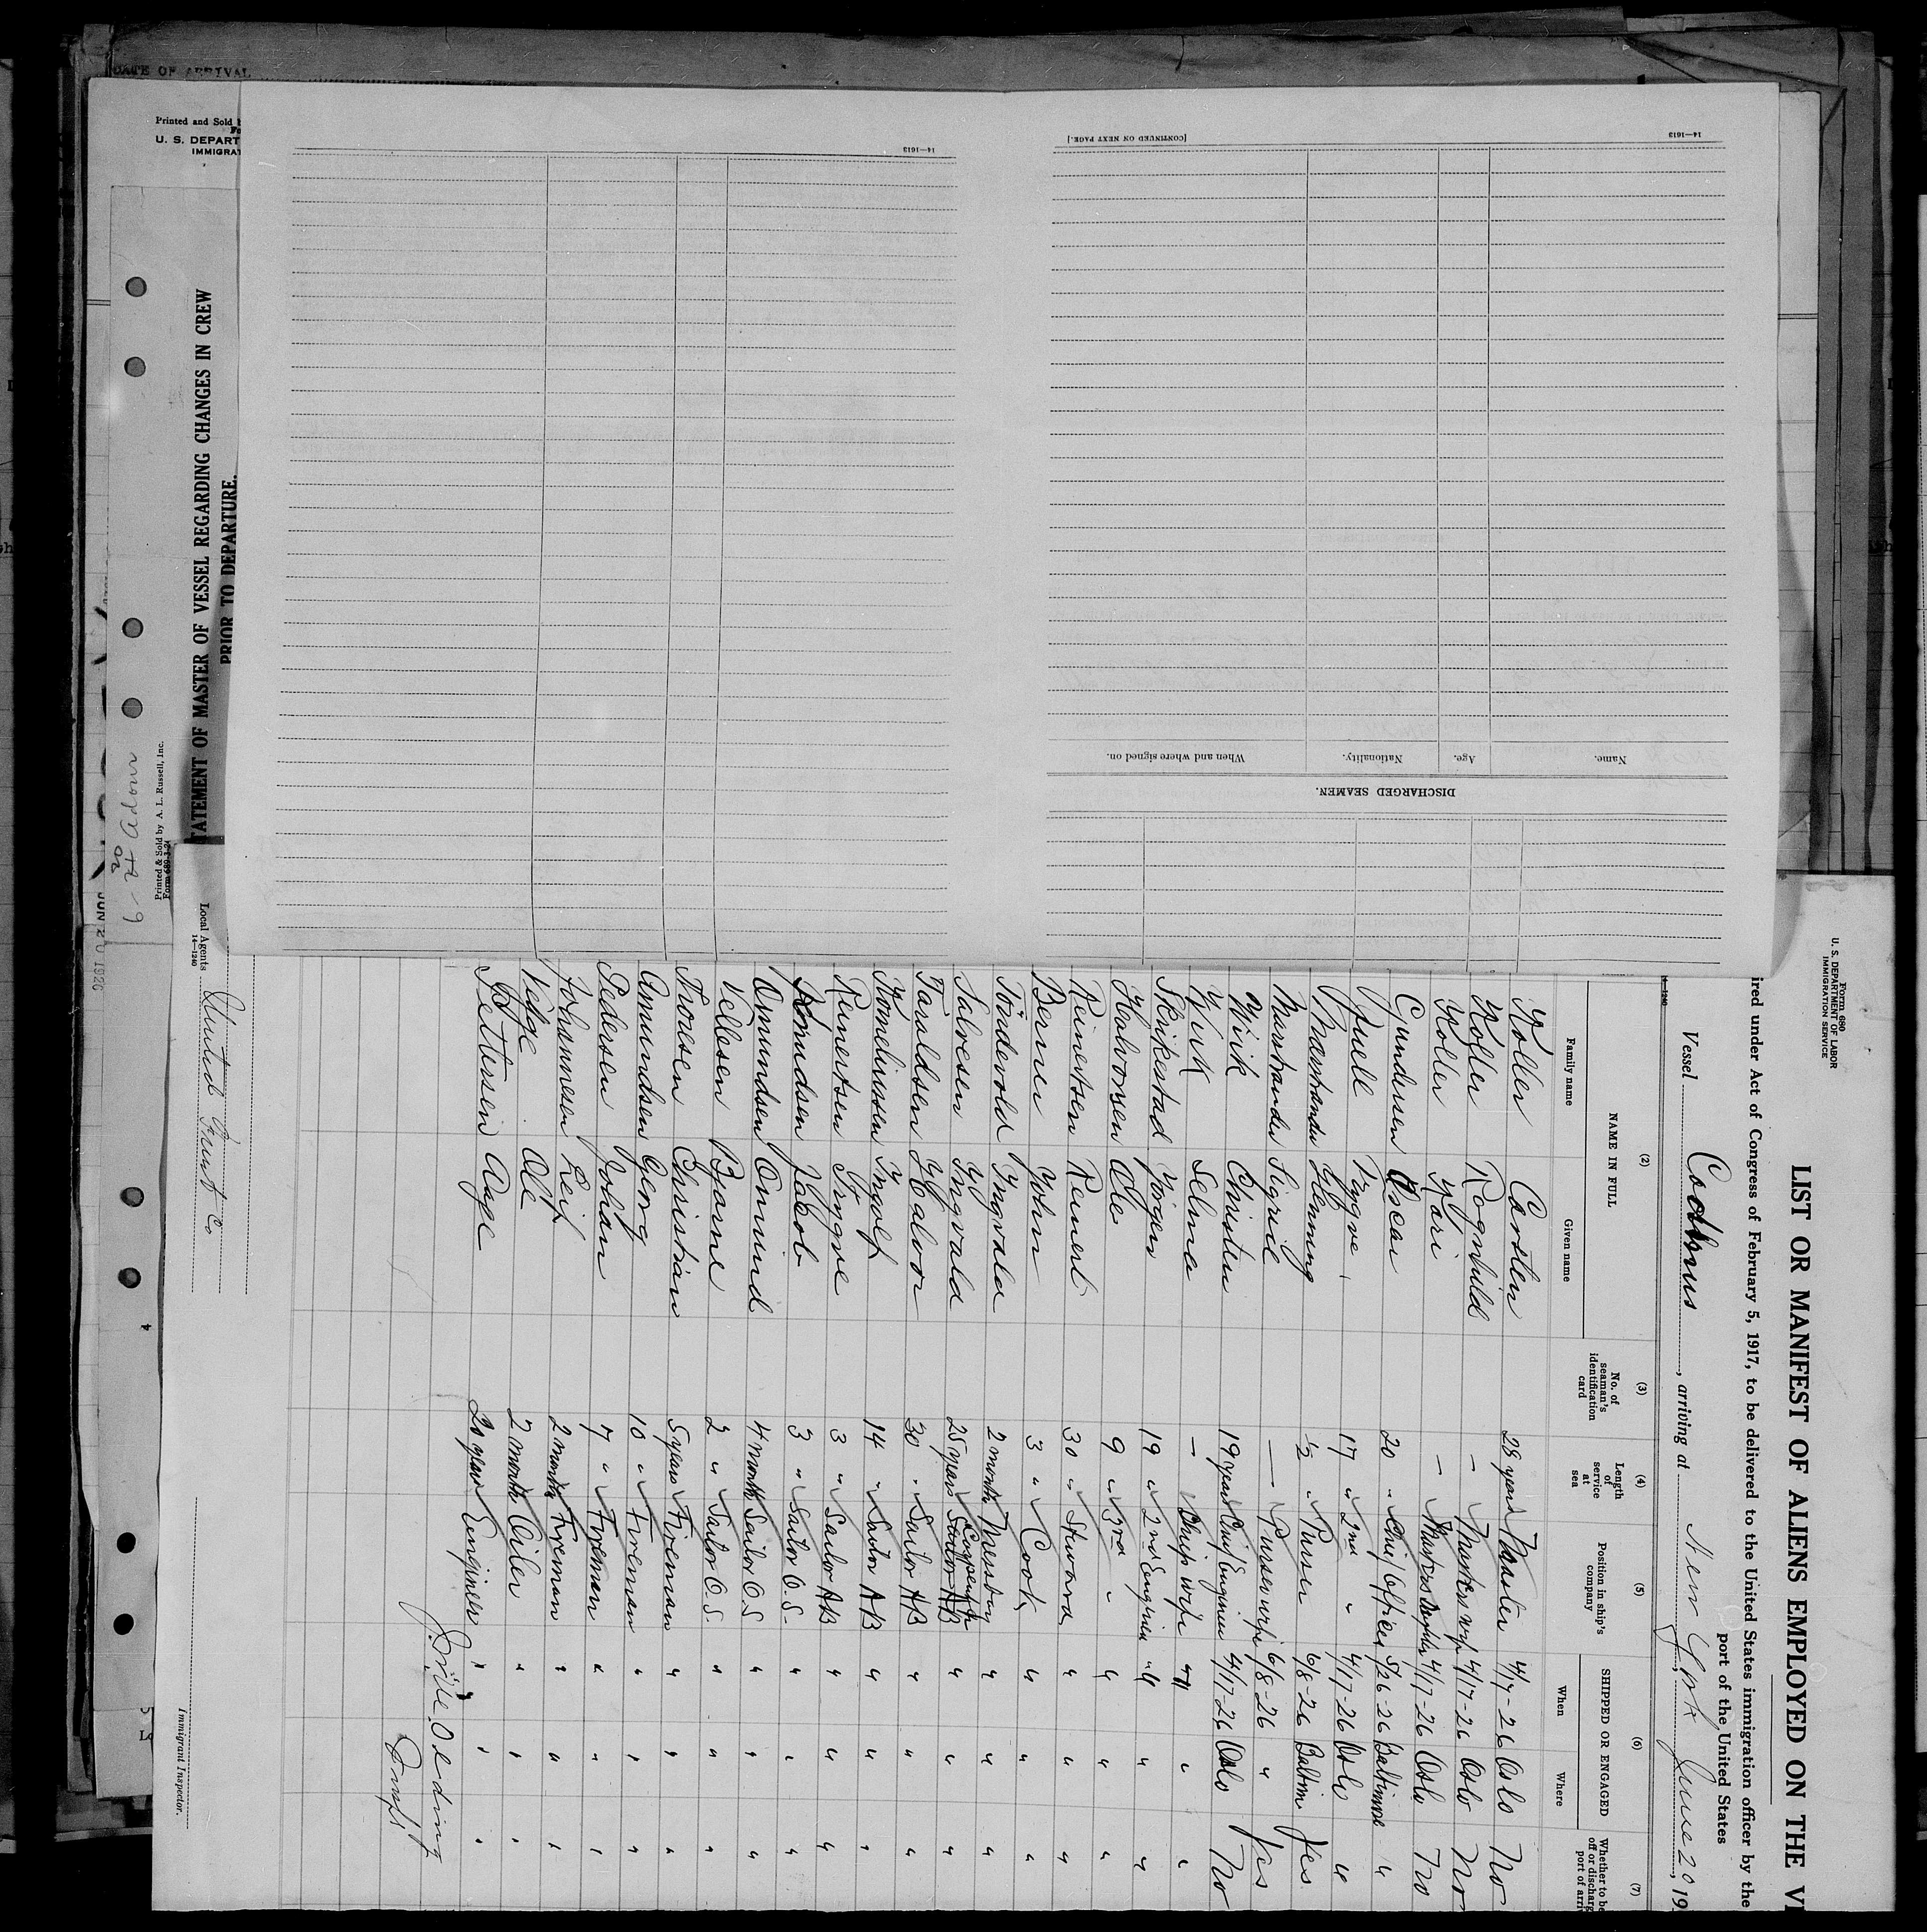 DATE OF ARRIVAL
Printed and Sold
U. S. DEPART
IMMIGRAT
STATEMENT OF MASTER OF VESSEL REGARDING CHANGES IN CREW
PRIOR TO DEPARTURE.
Printed & Sold by A. L. Russell, Inc.
Form 689
JUN 20 1926
14—1613
[CONTINUED ON NEXT PAGE.]
14—1613
DISCHARGED SEAMEN.
Name. Age. Nationality. When and where signed on.
Form 680
U. S. DEPARTMENT OF LABOR
IMMIGRATION SERVICE
LIST OR MANIFEST OF ALIENS EMPLOYED ON THE VE
ired under Act of Congress of February 5, 1917, to be delivered to the United States immigration officer by the
port of the United States
Vessel , arriving at New York June 20, 19
(2) (3) (4) (5) (6) (7)
NAME IN FULL
Family name Given name
No. of seaman's identification card
Length of service at sea
Position in ship's company
SHIPPED OR ENGAGED
When Where
Whether to be
off or discharg
port of arriv
Koller Carsten 28 years Master 4/17-26 Oslo No
Koller Rognhild — Masters wife 4/17-26 Oslo No
Koller Kari — Masters 4/17-26 Oslo No
Gundersen Oscar 20 " Chief Officer 5/26-26 Baltimore "
Juell Tygve 17 " 2nd " 4/17-26 Oslo "
Marstrander Flemming 1/2 " Purser 6/8-26 Yes
Marstrander Sigrid — Purser wife 6/8-26 " Yes
Wiik Christen 19 years Chief Engineer 4/17-26 Oslo No
Wiik Selma — Ships wife " " "
Skrikestad Jörgen 19 " 2nd Engineer " " "
Halvorsen Ole 9 " 3rd " " " "
Reinertsen Reinert 30 " Steward " " "
Bernu John 3 " Cook " " "
Töndevold Yngvald 2 month Messboy " " "
Salvesen Yngvald 25 years Carpenter Sailor AB " " "
Taraldsen Halvor 30 " Sailor AB " " "
Korneliussen Yngolf 14 " Sailor AB " " "
Reinertsen Tryngve 3 " Sailor AB " " "
Jacob 3 " Sailor O.S. " " "
Omundsen Omund 4 month Sailor O.S " " "
Vellesen Bjarne 2 " Sailor O.S. " " "
Thorsen Christian 5 years Fireman " " "
Amundsen Georg 10 " Fireman " " "
Pedersen Johan 7 " Fireman " " "
Johannesen Leif 2 months Fireman " " "
Velge Olé 2 month Oiler " " "
Pettersen Aage 20 years Engineer " " "
Local Agents United Fruit Co
14—1240
Immigrant Inspector.